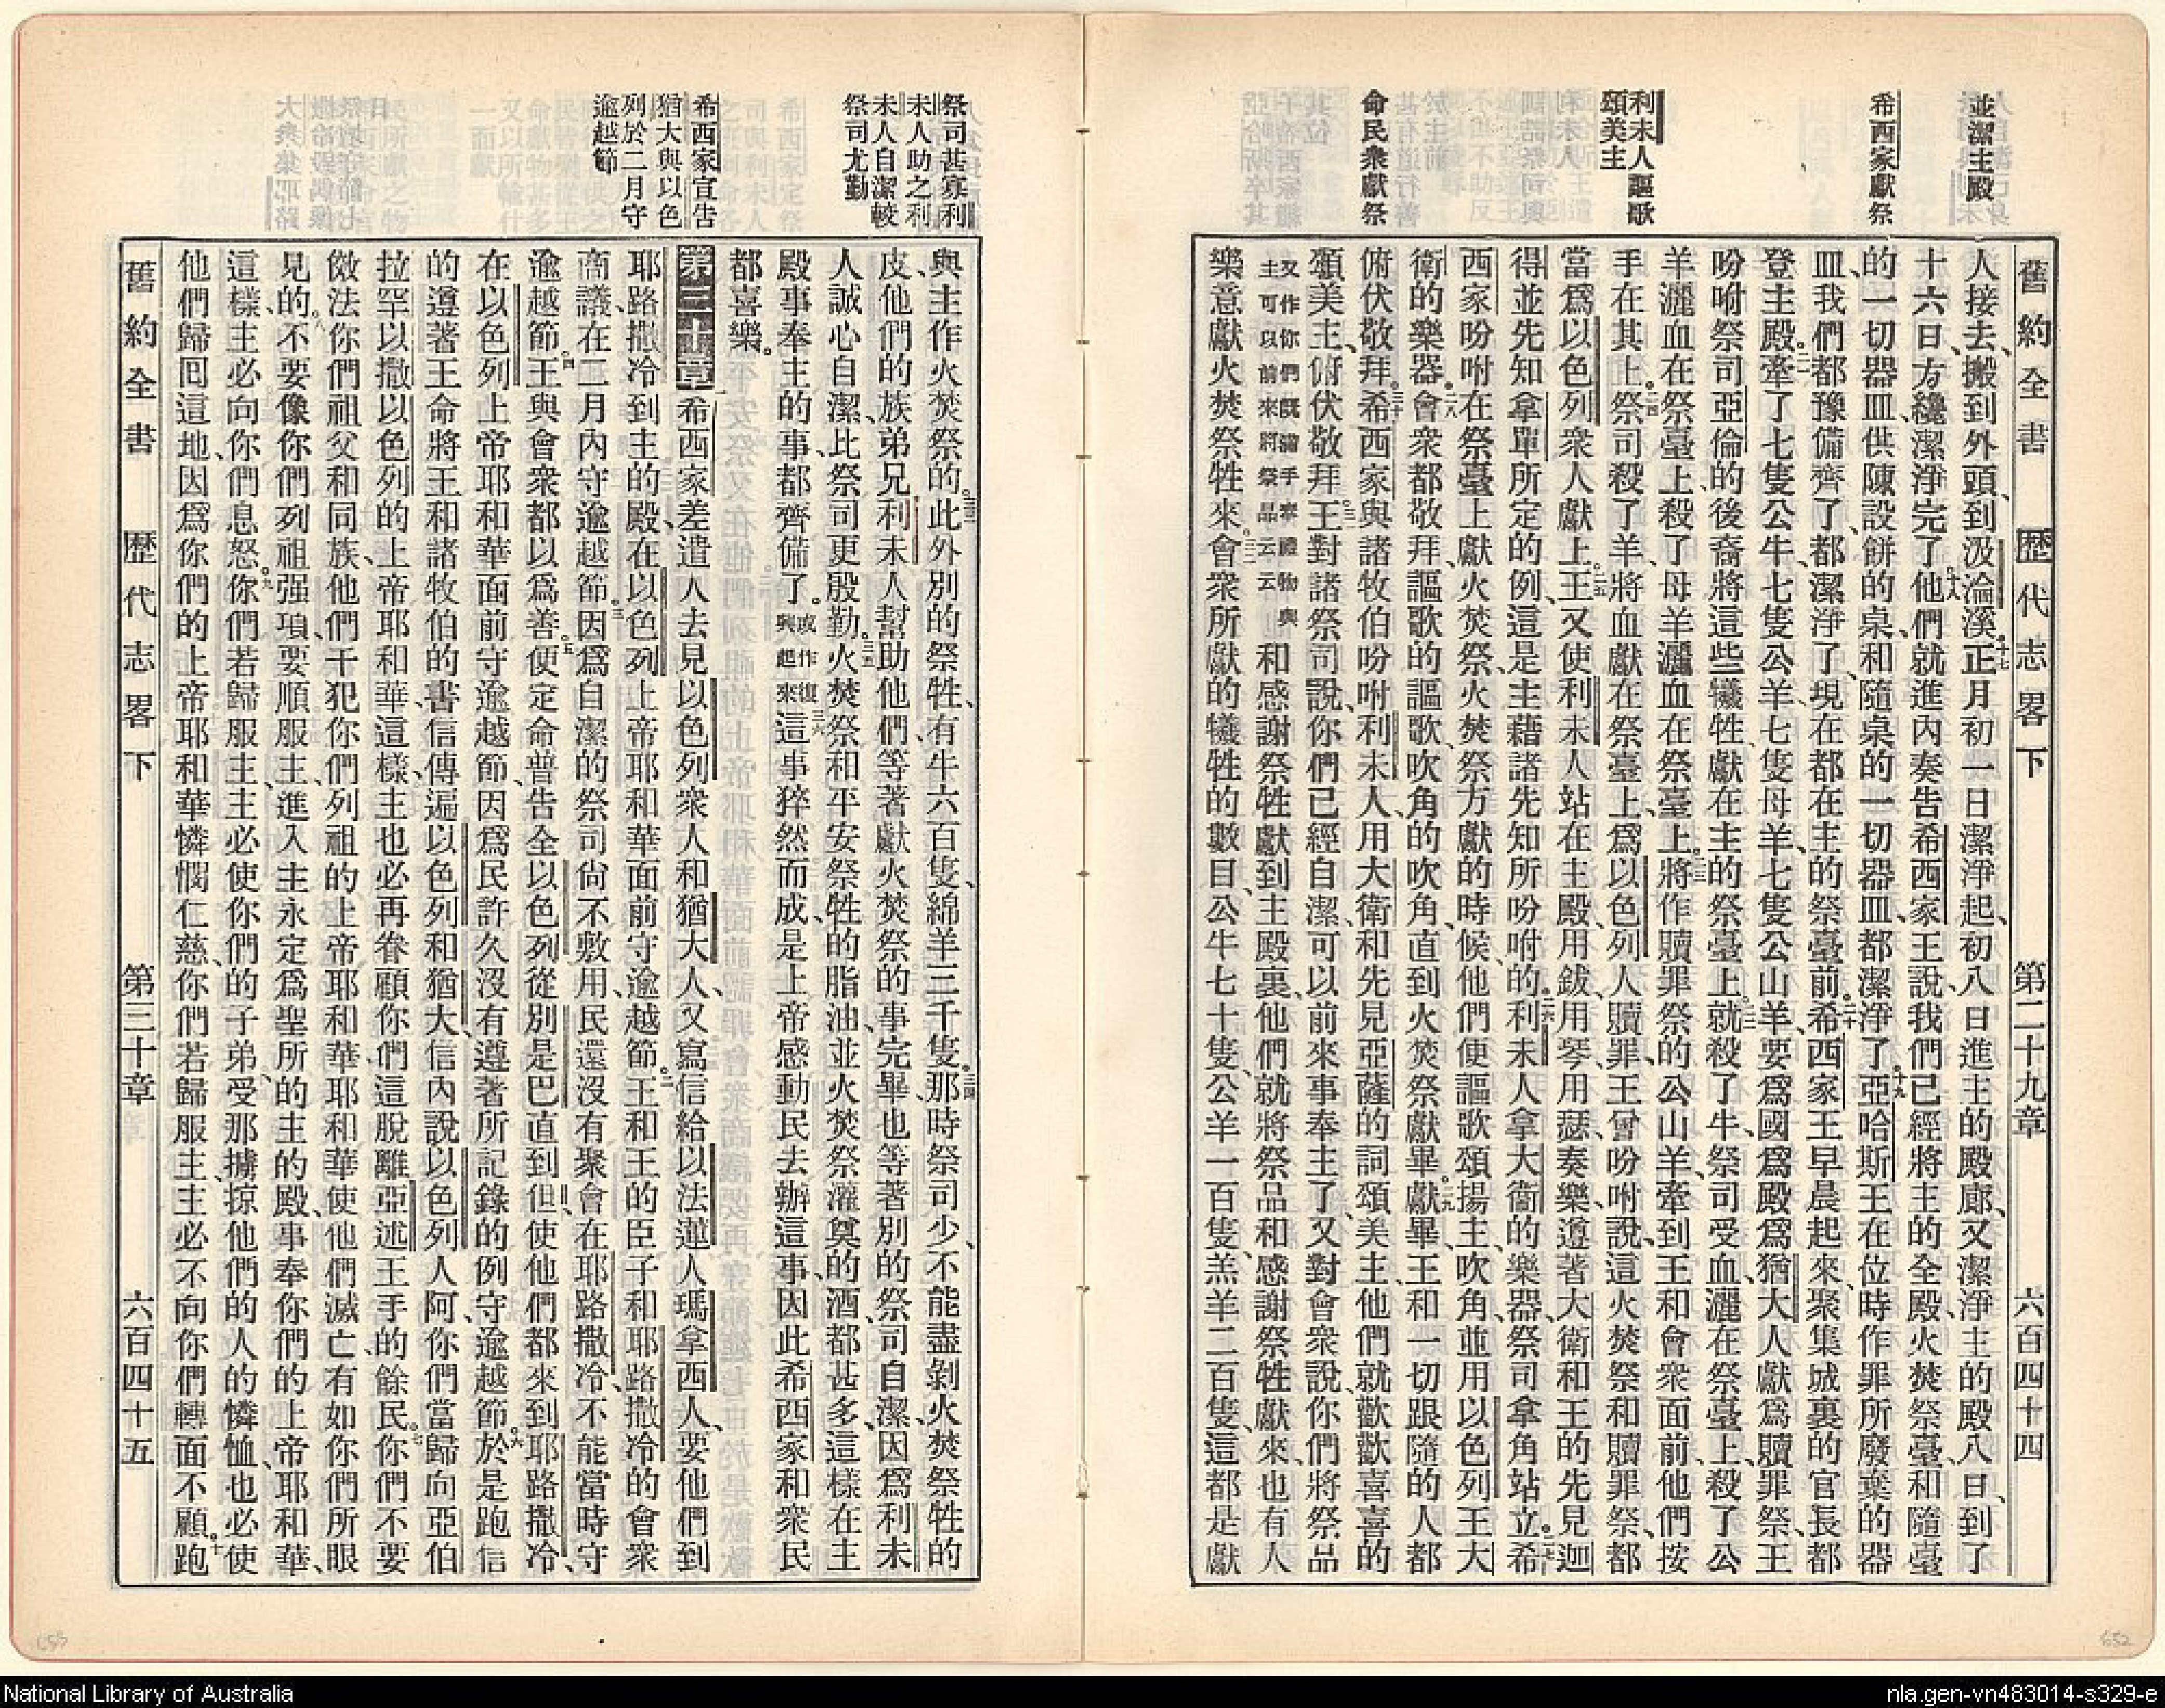 並潔主殿
希西家獻祭
利未人謳歌
頌美主
命民衆獻祭
舊約全書 歷代志畧下 第二十九章 六百四十四
人接去、搬到外頭、到汲淪溪。十七正月初一日潔淨起、初八日進主的殿廊、又潔淨主的殿八日、到了
十六日、方纔潔淨完了。十八他們就進內奏告希西家王說、我們已經將主的全殿、火焚祭臺、和隨臺
的一切器皿、供陳設餅的桌、和隨桌的一切器皿、都潔淨了。十九亞哈斯王在位時作罪所廢棄的器
皿、我們都豫備齊了、都潔淨了、現在都在主的祭臺前。二十希西家王早晨起來、聚集城裏的官長、都
登主殿。二一牽了七隻公牛、七隻公羊、七隻母羊、七隻公山羊、要爲國爲殿爲猶大人獻爲贖罪祭、王
吩咐祭司亞倫的後裔、將這些犧牲、獻在主的祭臺上。二二就殺了牛、祭司受血、灑在祭臺上、殺了公
羊、灑血在祭臺上、殺了母羊、灑血在祭臺上。二三將作贖罪祭的公山羊、牽到王和會衆面前、他們按
手在其上。二四祭司殺了羊、將血獻在祭臺上、爲以色列人贖罪、王曾吩咐說、這火焚祭和贖罪祭、都
當爲以色列衆人獻上。二五王又使利未人站在主殿、用鈸用琴用瑟奏樂、遵著大衛和王的先見迦
得、並先知拿單所定的例、這是主藉諸先知所吩咐的。二六利未人拿大衛的樂器、祭司拿角站立。二七希
西家吩咐在祭臺上獻火焚祭、火焚祭方獻的時候、他們便謳歌頌揚主、吹角、並用以色列王大
衛的樂器。二八會衆都敬拜、謳歌的謳歌、吹角的吹角、直到火焚祭獻畢。二九獻畢、王和一切跟隨的人都
俯伏敬拜。三十希西家與諸牧伯吩咐利未人、用大衛和先見亞薩的詞頌美主、他們就歡歡喜喜的
頌美主、俯伏敬拜。三一王對諸祭司說、你們已經自潔、可以前來事奉主了、又對會衆說、你們將祭品
又作你們既滿手奉禮物與主可以前來將祭品云云和感謝祭牲獻到主殿裏、他們就將祭品和感謝祭牲獻來、也有人
樂意獻火焚祭牲來。三二會衆所獻的犧牲的數目、公牛七十隻、公羊一百隻、羔羊二百隻、這都是獻
祭司甚寡利
未人助之利
未人自潔較
祭司尤勤
希西家宣告
猶大與以色
列於二月守
逾越節
與主作火焚祭的。三三此外別的祭牲、有牛六百隻、綿羊三千隻。三四那時祭司少、不能盡剝火焚祭牲的
皮、他們的族弟兄利未人幫助他們、等著獻火焚祭的事完畢、也等著別的祭司自潔、因爲利未
人誠心自潔、比祭司更殷勤。三五火焚祭和平安祭牲的脂油、並火焚祭灌奠的酒、都甚多、這樣在主
殿事奉主的事、都齊備了。或作復興起來三六這事猝然而成、是上帝感動民去辦這事、因此希西家和衆民
都喜樂。
第三十章 一希西家差遣人去見以色列衆人和猶大人、又寫信給以法蓮人瑪拿西人、要他們到
耶路撒冷到主的殿、在以色列上帝耶和華面前守逾越節。二王和王的臣子和耶路撒冷的會衆
商議、在二月內守逾越節。三因爲自潔的祭司尙不敷用、民還沒有聚會在耶路撒冷、不能當時守
逾越節。四王與會衆都以爲善。五便定命普告全以色列、從別是巴直到但、使他們都來到耶路撒冷、
在以色列上帝耶和華面前守逾越節、因爲民許久沒有遵著所記錄的例守逾越節。六於是跑信
的遵著王命、將王和諸牧伯的書信傳遍以色列和猶大、信內說、以色列人阿、你們當歸向亞伯
拉罕以撒以色列的上帝耶和華、這樣、主也必再眷顧你們這脫離亞述王手的餘民。七你們不要
傚法你們祖父和同族、他們干犯你們列祖的上帝耶和華、耶和華使他們滅亡、有如你們所眼
見的。八不要像你們列祖强項、要順服主、進入主永定爲聖所的主的殿、事奉你們的上帝耶和華、
這樣、主必向你們息怒。九你們若歸服主、主必使你們的子弟、受那擄掠他們的人的憐恤、也必使
他們歸囘這地、因爲你們的上帝耶和華憐憫仁慈、你們若歸服主、主必不向你們轉面不顧。十跑
舊約全書 歷代志畧下 第三十章 六百四十五
652
653
National Library of Australia
nla.gen-vn483014-s329-e